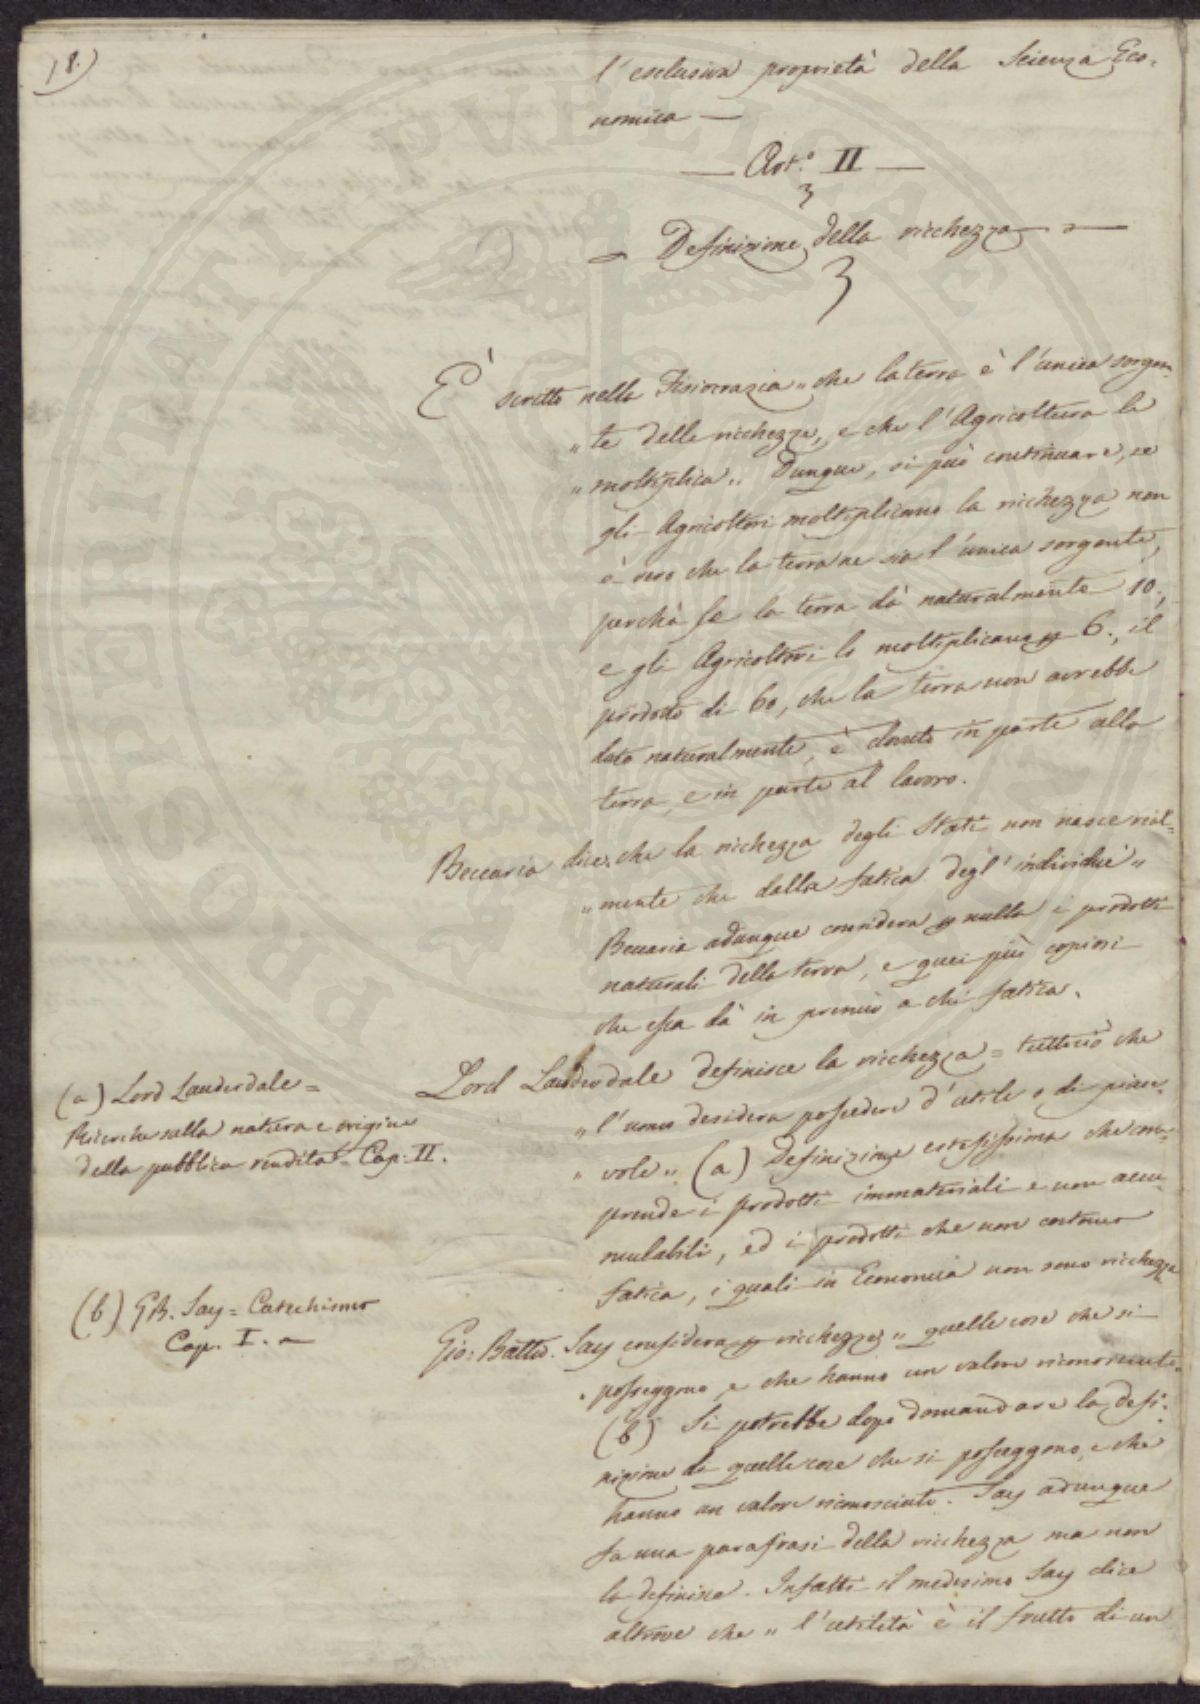 18.)
l'esclusiva proprietà della Scienza Eco-
nomica —
— Art.º II —
Definizione della ricchezza —
È scritto nella Fisiocrazia „ che la terra è l'unica sorgen-
„ te delle ricchezze, e che l'Agricoltura le
„ moltiplica „ Dunque, si può continuare, se
gli Agricoltori moltiplicano la ricchezza non
è vero che la terra ne sia l'unica sorgente,
perchè se la terra dà naturalmente 10.,
e gli Agricoltori lo moltiplicano 6., il
prodotto di 60, che la terra non avrebbe
dato naturalmente, è dovuto in parte alla
terra, e in parte al lavoro.
Beccaria dice, che la ricchezza degli Stati non nasce real-
„ mente che dalla fatica degl'individui „
Beccaria adunque considera nulla i prodotti
naturali della terra, e quei più copiosi
che essa dà in premio a chi fatica.
Lord Lauderdale definisce la ricchezza = tuttociò che
„ l'uomo desidera possedere d'utile o di piace-
„ vole „ (a) Definizione estesissima che com-
prende i prodotti immateriali e non accu-
mulabili, ed i prodotti che non costano
fatica, i quali in Economia non sono ricchezza
Gio: Batta. Say considera ricchezze „ quelle cose che si
„ posseggono, e che hanno un valore riconosciuto.
(b) Si potrebbe dopo domandare la defi-
nizione di quelle cose che si posseggono, e che
hanno un valore riconosciuto. Say adunque
fa una parafrasi della ricchezza ma non
la definisce. Infatti il medesimo Say dice
altrove che „ l'utilità è il frutto di un
(a) Lord Lauderdale =
Ricerche sulla natura e origine
della pubblica rendita = Cap: II.
(b) GB. Say = Catechismo
Cap. I. —